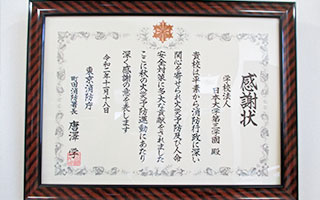 感謝状
学校法人
日本大学第三学園 殿
貴校は平素から消防行政に深い
関心を寄せられ火災予防及び人命
安全対策に多大な貢献をされました
ここに秋の火災予防運動にあたり
深く感謝の意を表します
令和二年十一月十八日
東京消防庁
町田消防署長 唐澤 学